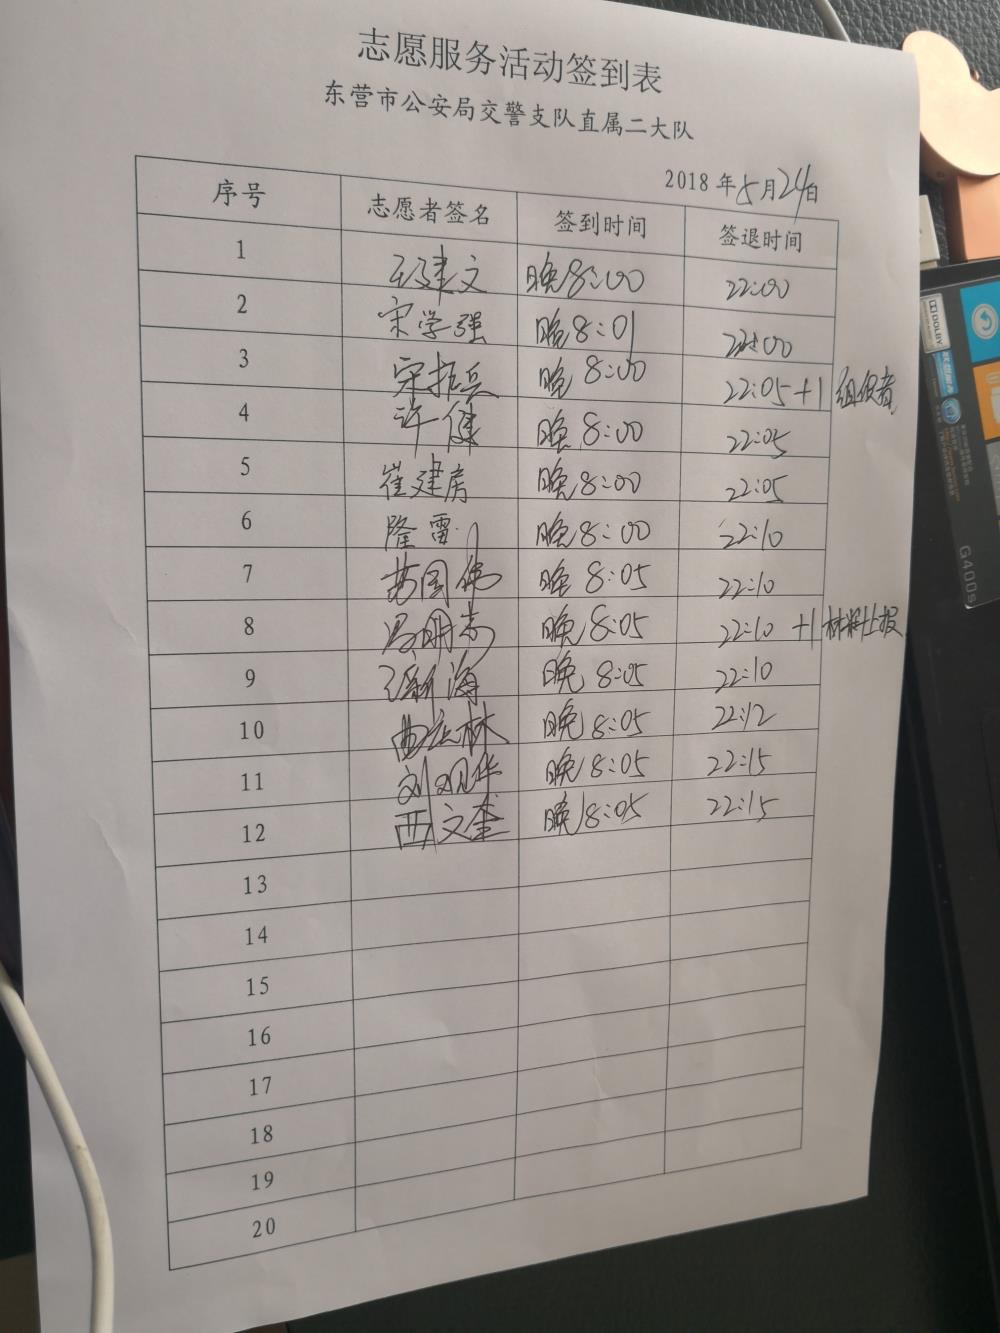 志愿服务活动签到表
东营市公安局交警支队直属二大队
2018年5月24日
序号 志愿者签名 签到时间 签退时间
1 建文 晚8:00 22:00
2 宋学强 晚8:01 22:00
3 宋振兵 晚8:00 22:05 +1 组织者
4 许健 晚8:00 22:05
5 崔建房 晚8:00 22:05
6 隆雷 晚8:00 22:10
7 国伟 晚8:05 22:10
8 冯明志 晚8:05 22:10 +1 材料上报
9 张新海 晚8:05 22:10
10 西林 晚8:05 22:12
11 刘观华 晚8:05 22:15
12 西文奎 晚8:05 22:15
13
14
15
16
17
18
19
20
DOLBY
G400s